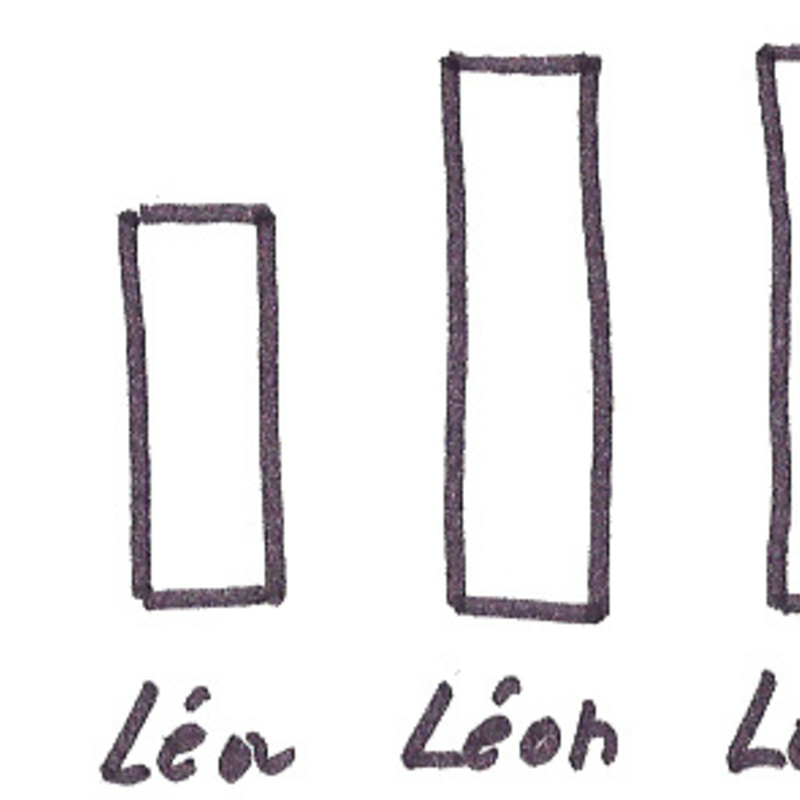 Léa Léon